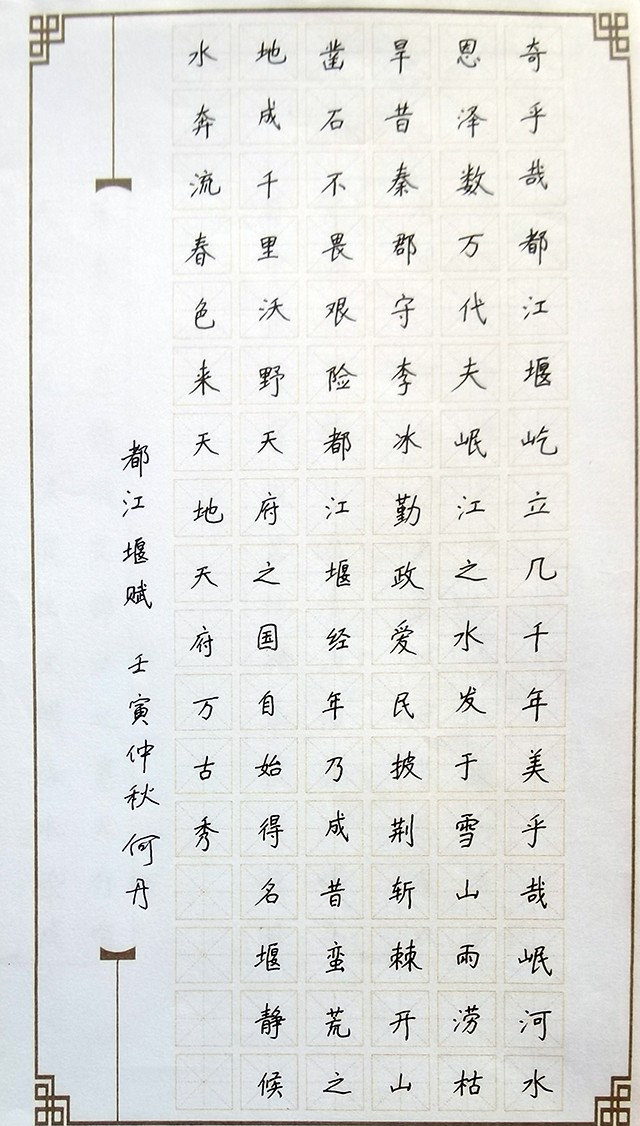 奇乎哉都江堰屹立几千年美乎哉岷河水
恩泽数万代夫岷江之水发于雪山雨涝枯
旱昔秦郡守李冰勤政爱民披荆斩棘开山
凿石不畏艰险都江堰经年乃成昔蛮荒之
地成千里沃野天府之国自始得名堰静候
水奔流春色来天地天府万古秀
都江堰赋 壬寅仲秋何丹